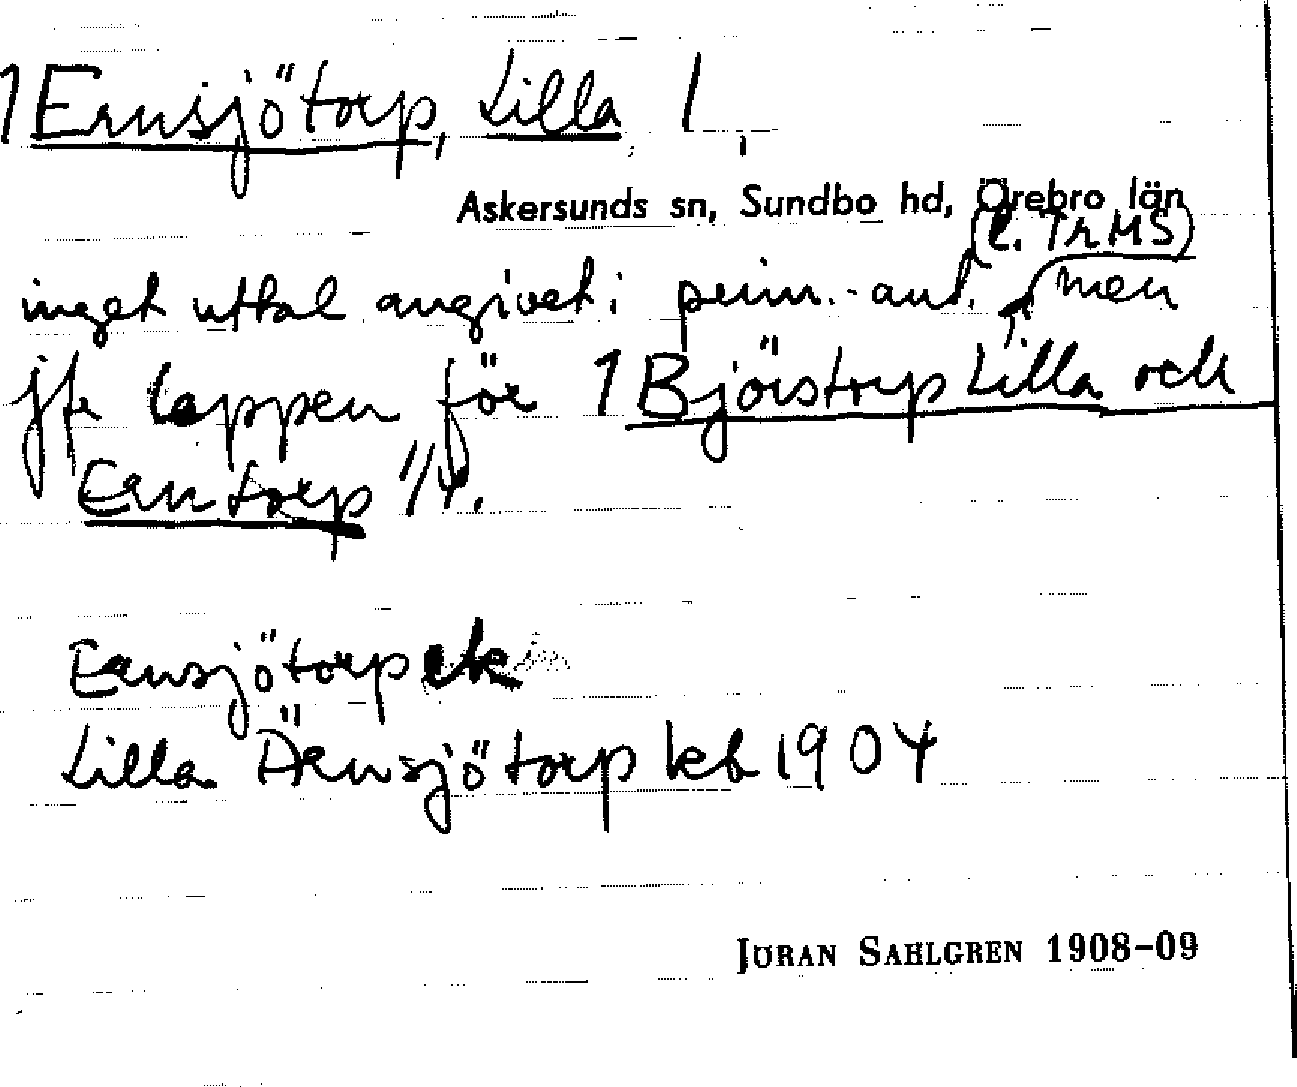 1 Ernsjötorp, Lilla 1
Askersunds sn, Sundbo hd, Örebro län
(l. TRMS)
inget uttal angivet i prim.-ant. men
jfr lappen för 1 Björstorp Lilla och
Erntorp 1/4.
Ernsjötorp ek
Lilla Ärnsjötorp kb 1904
JÖRAN SAHLGREN 1908-09